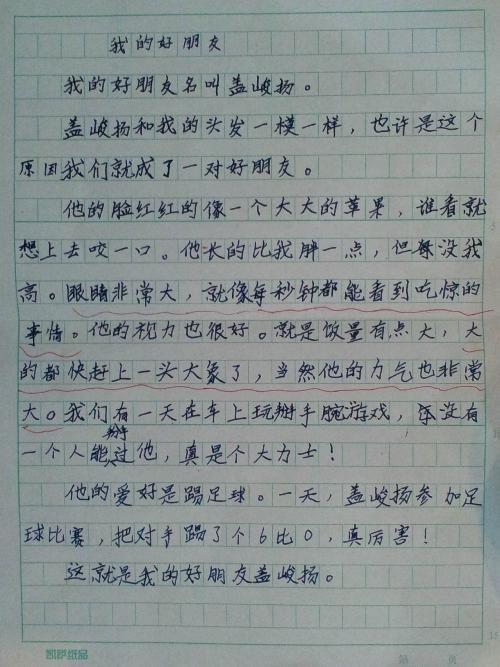 我的好朋友
我的好朋友名叫盖峻扬。
盖峻扬和我的头发一模一样，也许是这个
原因我们就成了一对好朋友。
他的脸红红的像一个大大的苹果，谁看就
想上去咬一口。他长的比我胖一点，但没我
高。眼睛非常大，就像每秒钟都能看到吃惊的
事情。他的视力也很好。就是饭量有点大，大
的都快赶上一头大象了，当然他的力气也非常
大。我们有一天在车上玩掰手腕游戏，没有
一个人能掰过他，真是个大力士！
他的爱好是踢足球。一天，盖峻扬参加足
球比赛，把对手踢了个6比0，真厉害！
这就是我的好朋友盖峻扬。
凯萨纸品
第 页